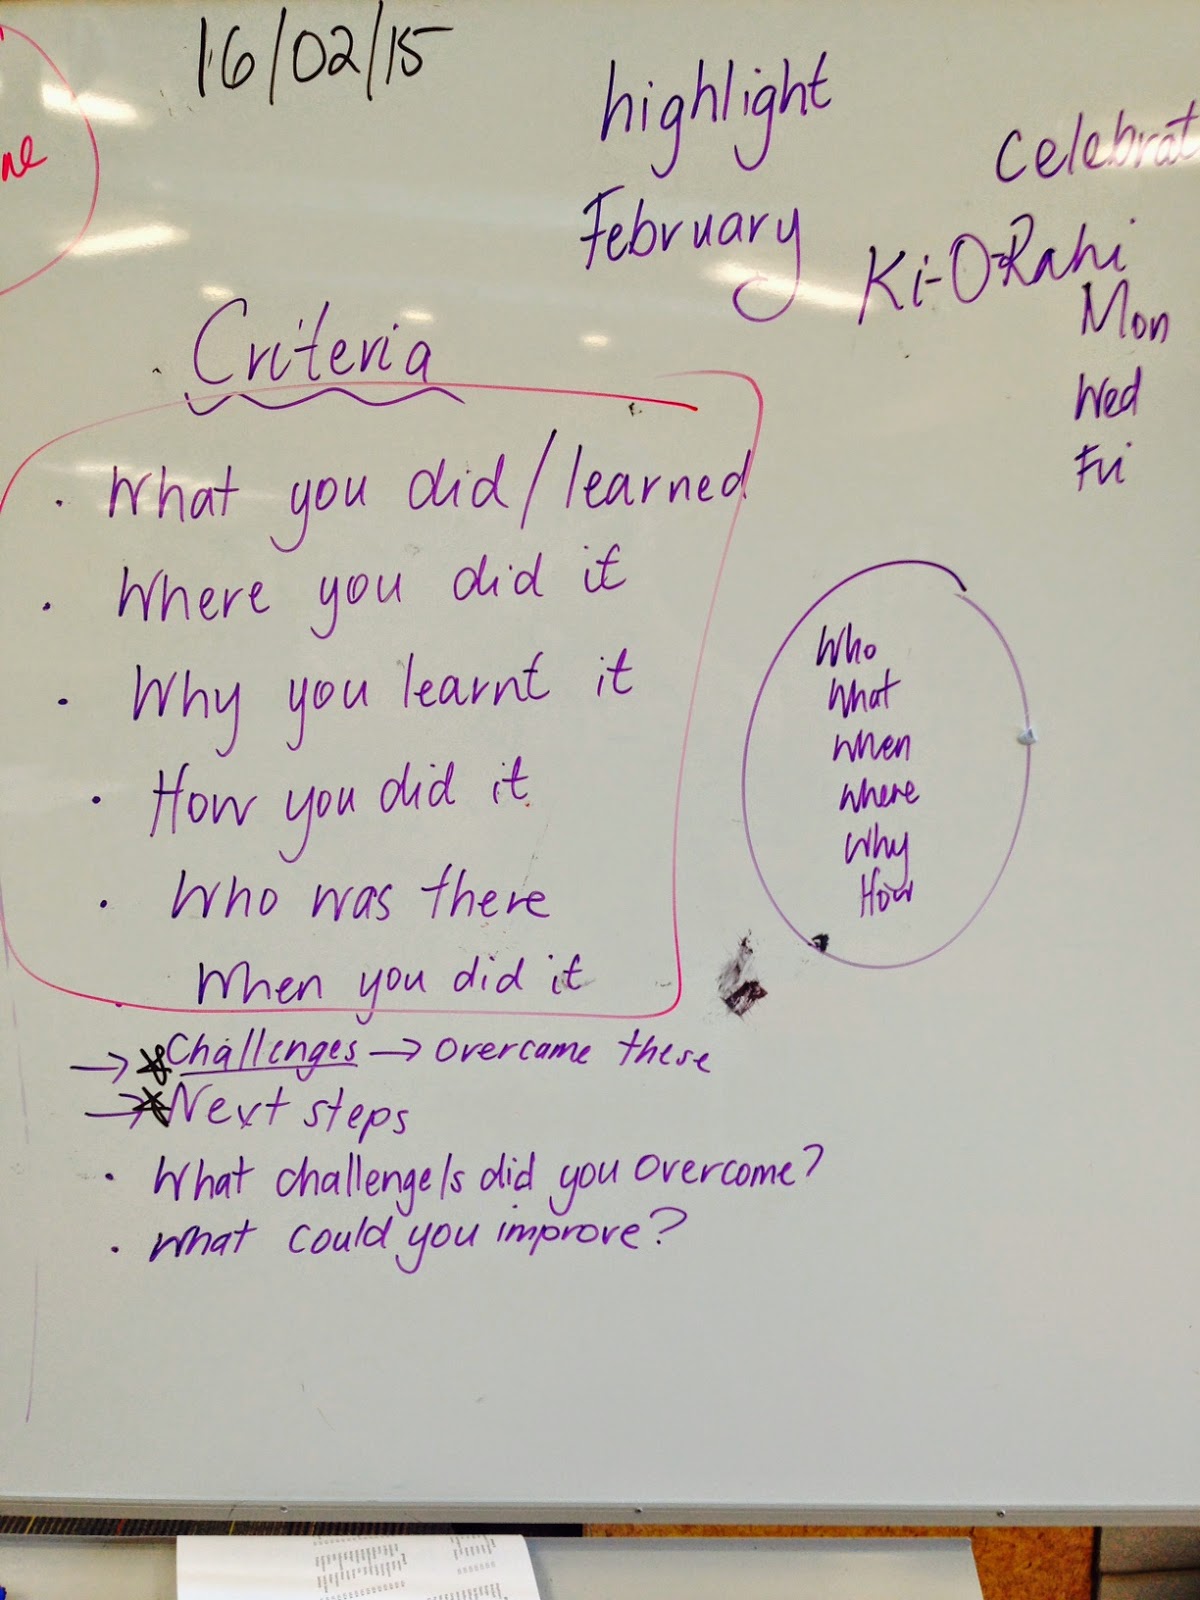 16/02/15
highlight
February
celebrat
Ki-O-Rahi
Mon
Wed
Fri
Criteria
· What you did/learned
· Where you did it
· Why you learnt it
· How you did it
· Who was there
· When you did it
→ *Challenges → overcame these
→ *Next steps
· What challenge/s did you overcome?
· What could you improve?
Who
What
When
Where
Why
How